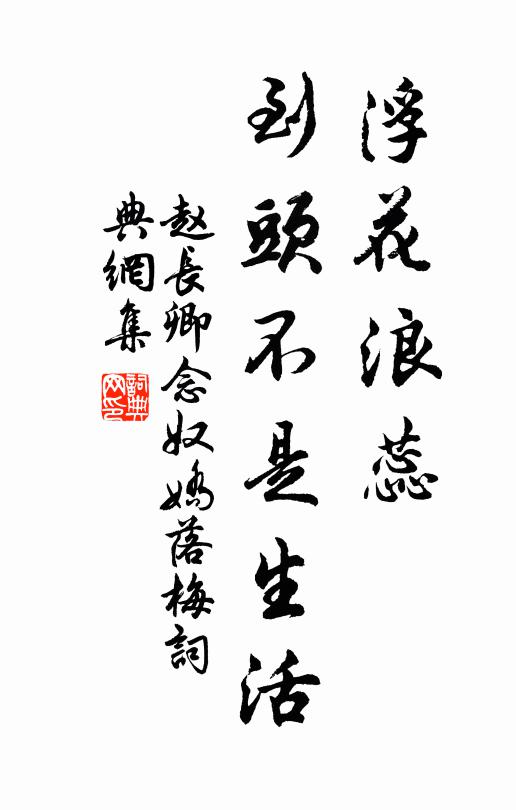 浮花浪蕊
到頭不是生活
赵長卿念奴嬌落梅詞
典網集
詞典
网印